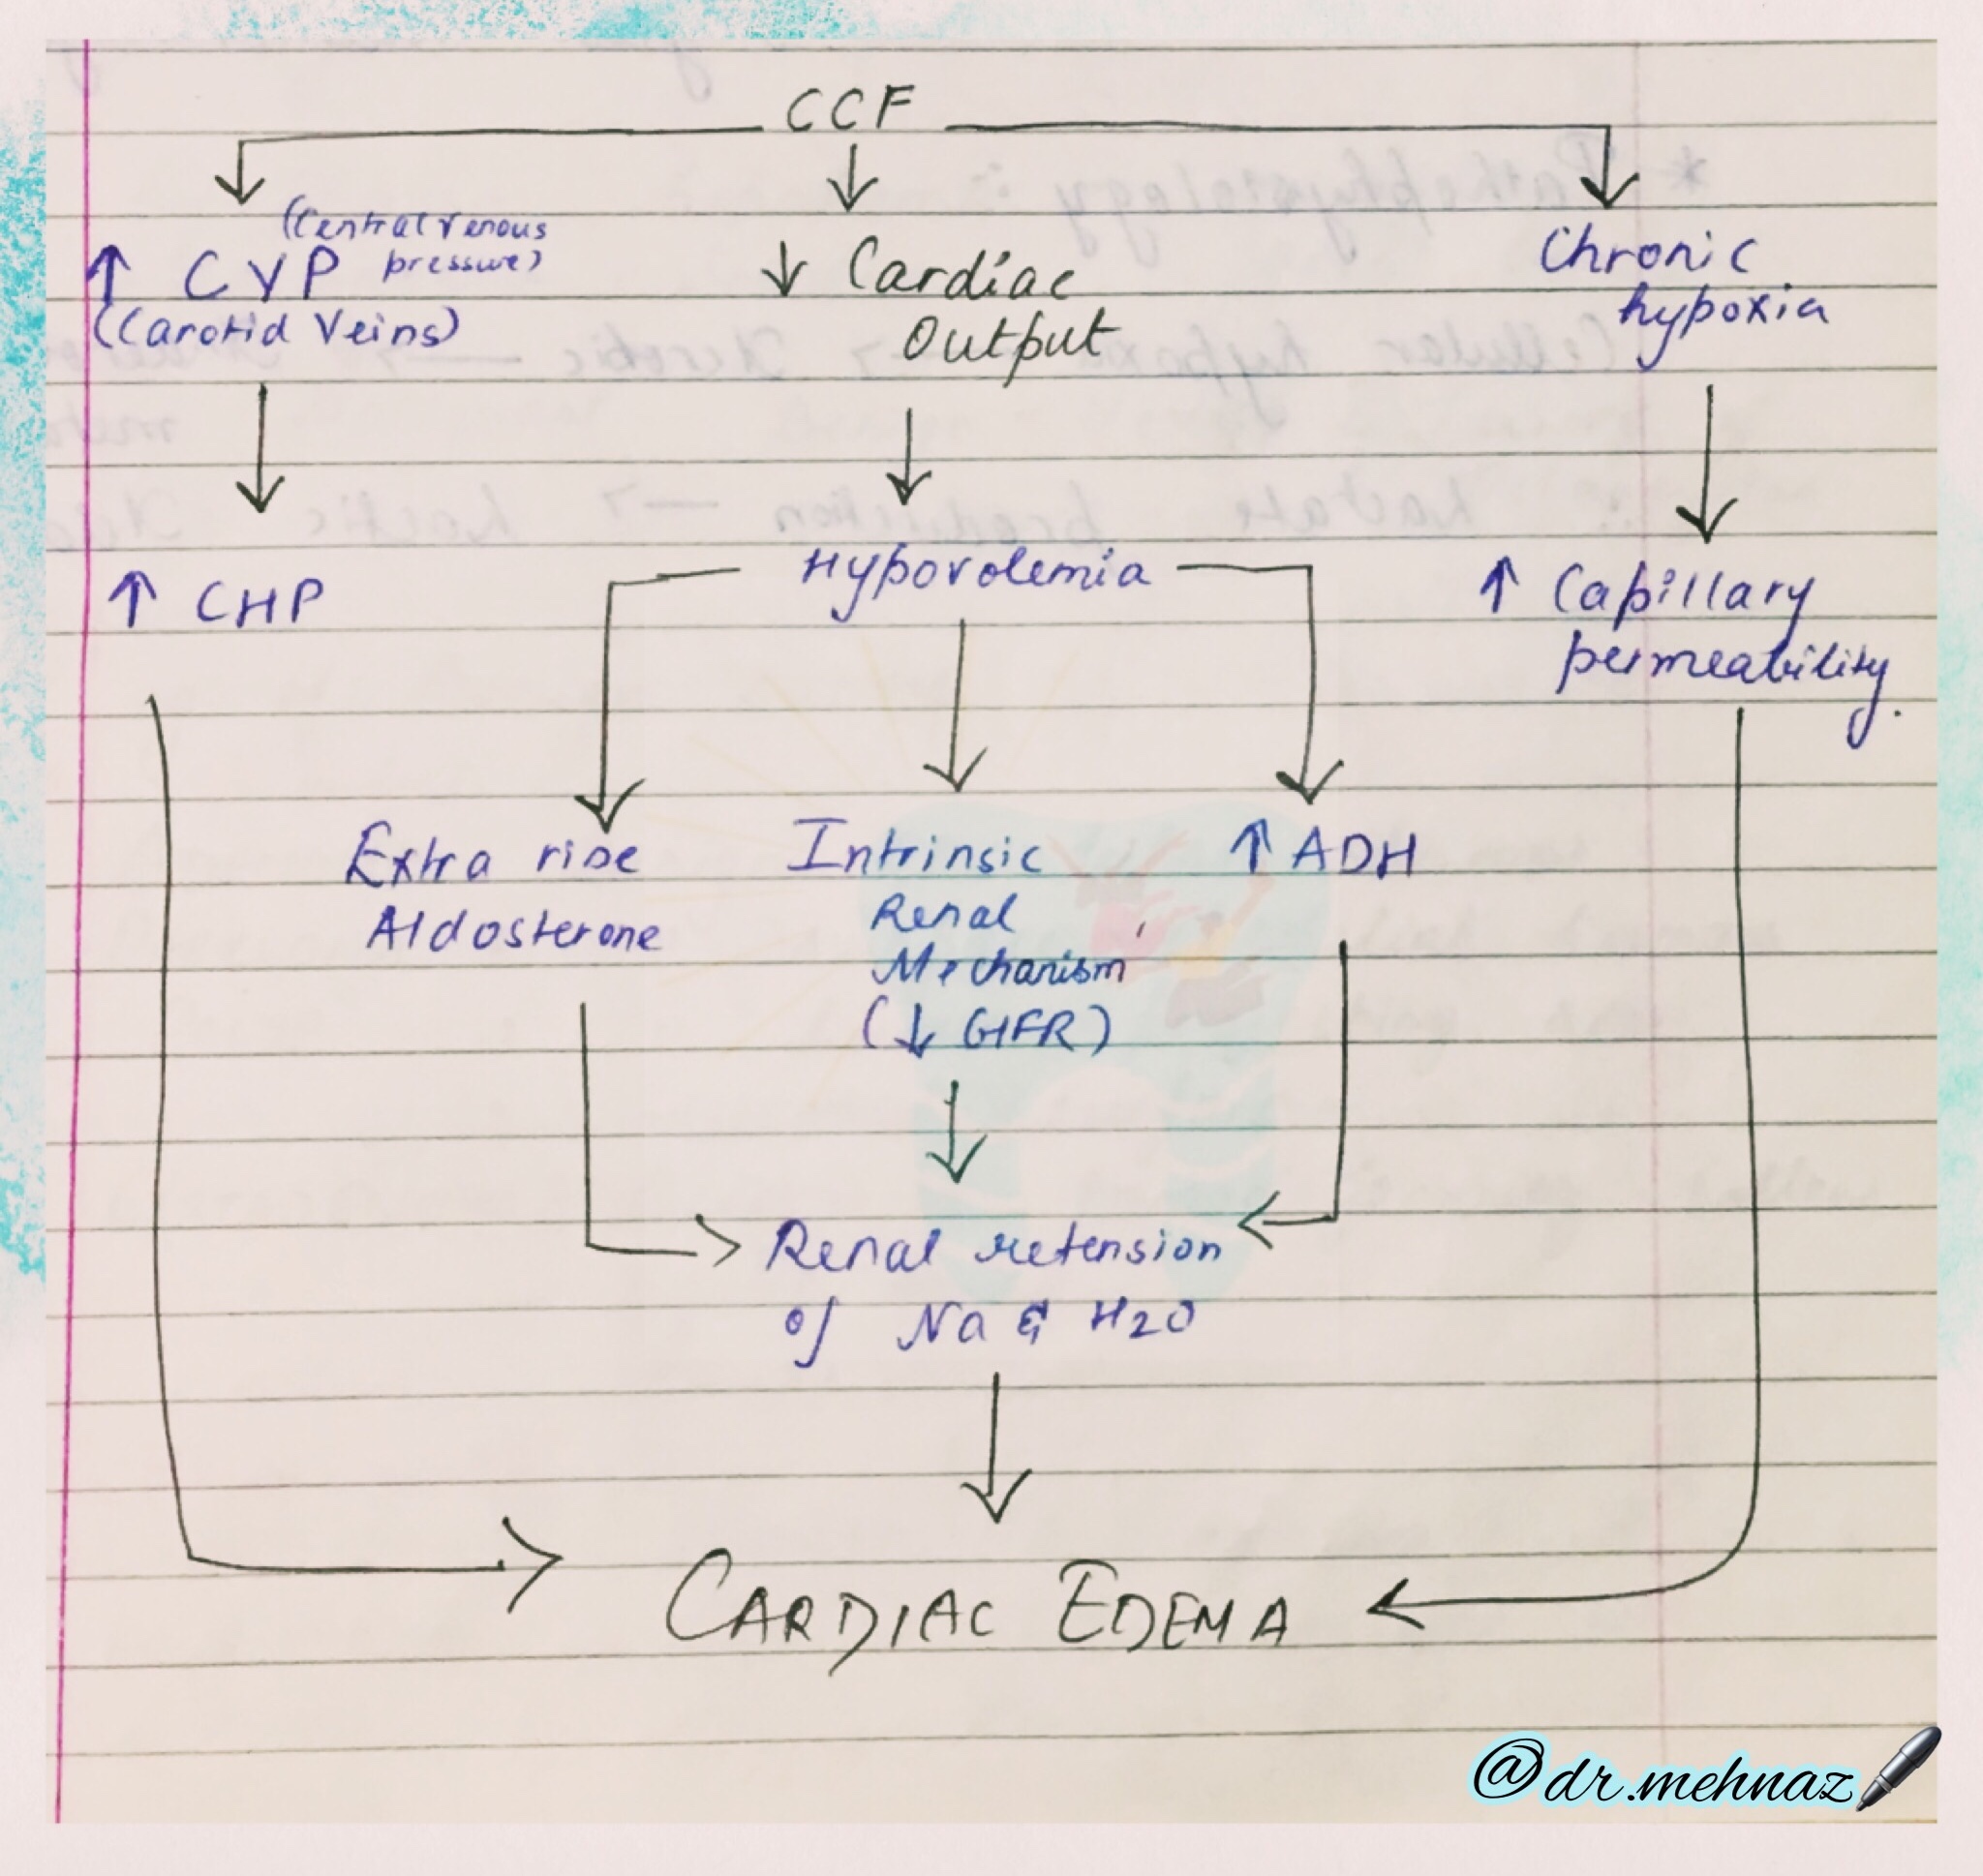 CCF
(Central venous
pressure)
↑ CVP
(Carotid Veins)
↓ Cardiac
Output
Chronic
hypoxia
↑ CHP
Hypovolemia
↑ Capillary
permeability.
Extra rise
Aldosterone
Intrinsic
Renal
Mechanism
(↓ GFR)
↑ ADH
Renal retension
of Na & H2O
CARDIAC EDEMA
@dr.mehnaz